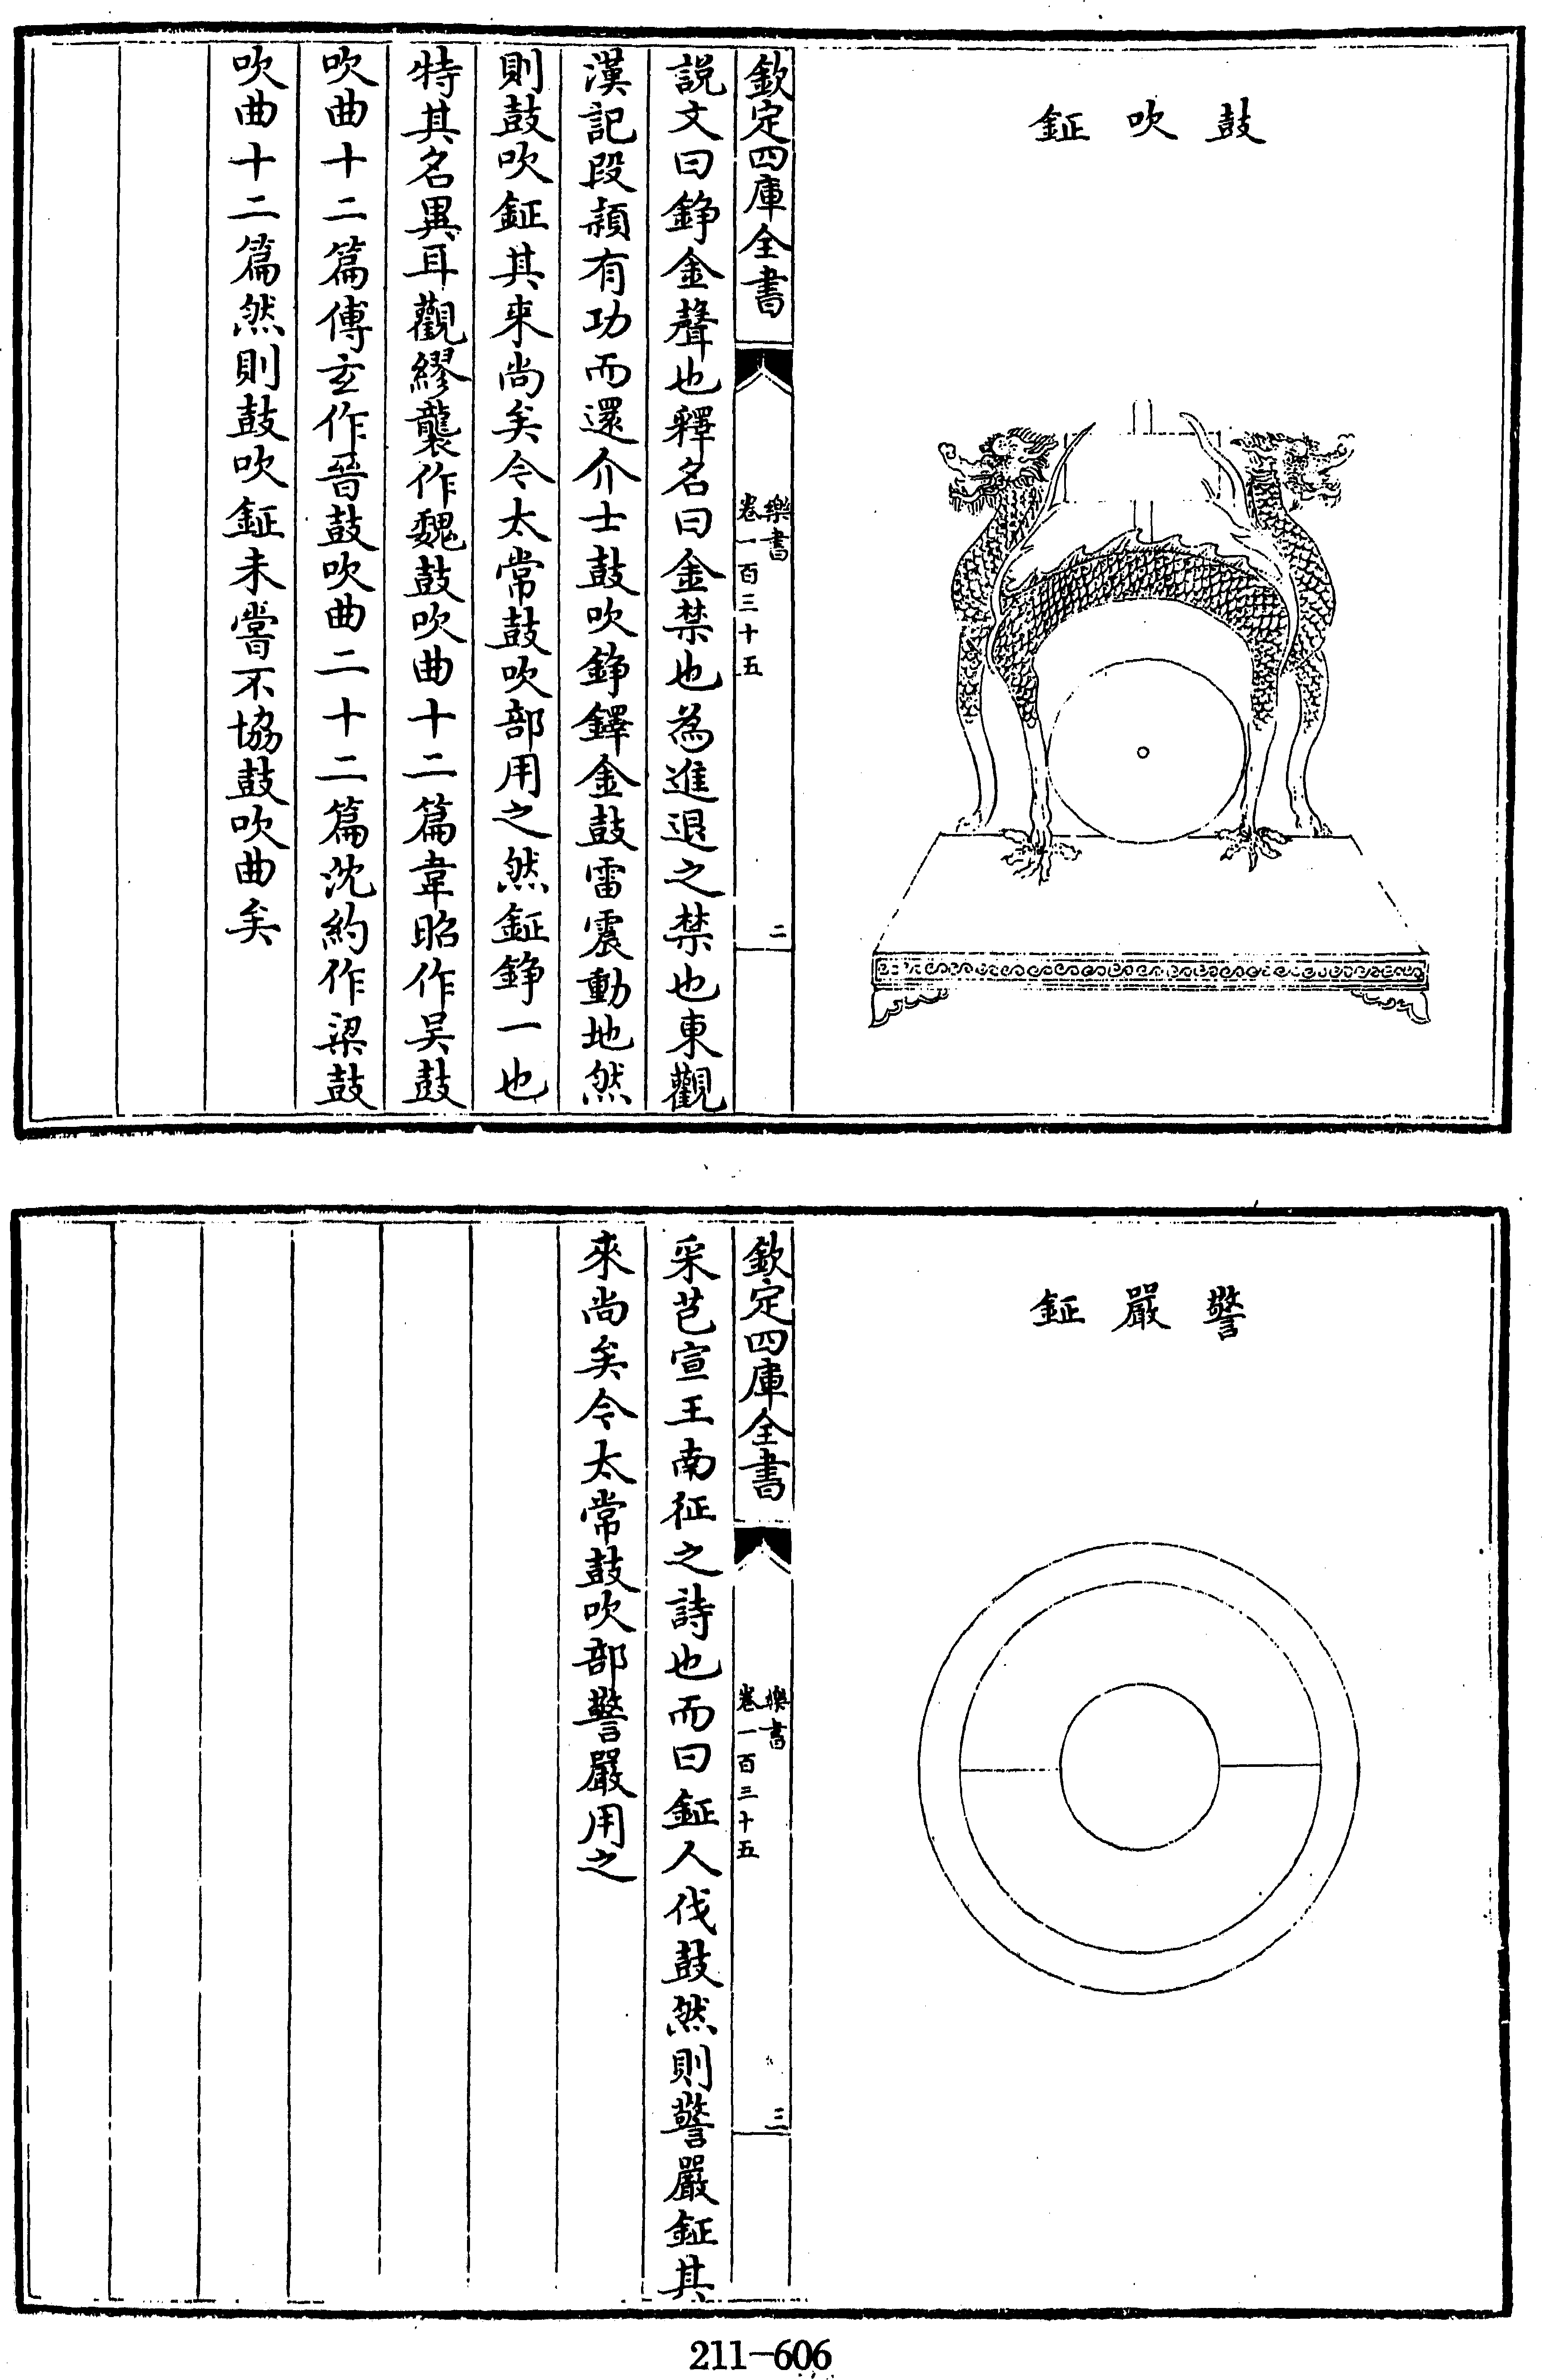 鼓吹鉦
欽定四庫全書
樂書
卷一百三十五
二
説文曰錚金聲也釋名曰金禁也為進退之禁也東觀
漢記段熲有功而還介士鼓吹錚鐸金鼓雷震動地然
則鼓吹鉦其來尚矣今太常鼓吹部用之然鉦錚一也
特其名異耳觀繆襲作魏鼓吹曲十二篇韋昭作吴鼓
吹曲十二篇傅玄作晉鼓吹曲二十二篇沈約作梁鼓
吹曲十二篇然則鼓吹鉦未嘗不協鼓吹曲矣
警嚴鉦
欽定四庫全書
樂書
卷一百三十五
三
采芑宣王南征之詩也而曰鉦人伐鼓然則警嚴鉦其
來尚矣今太常鼓吹部警嚴用之
211-606